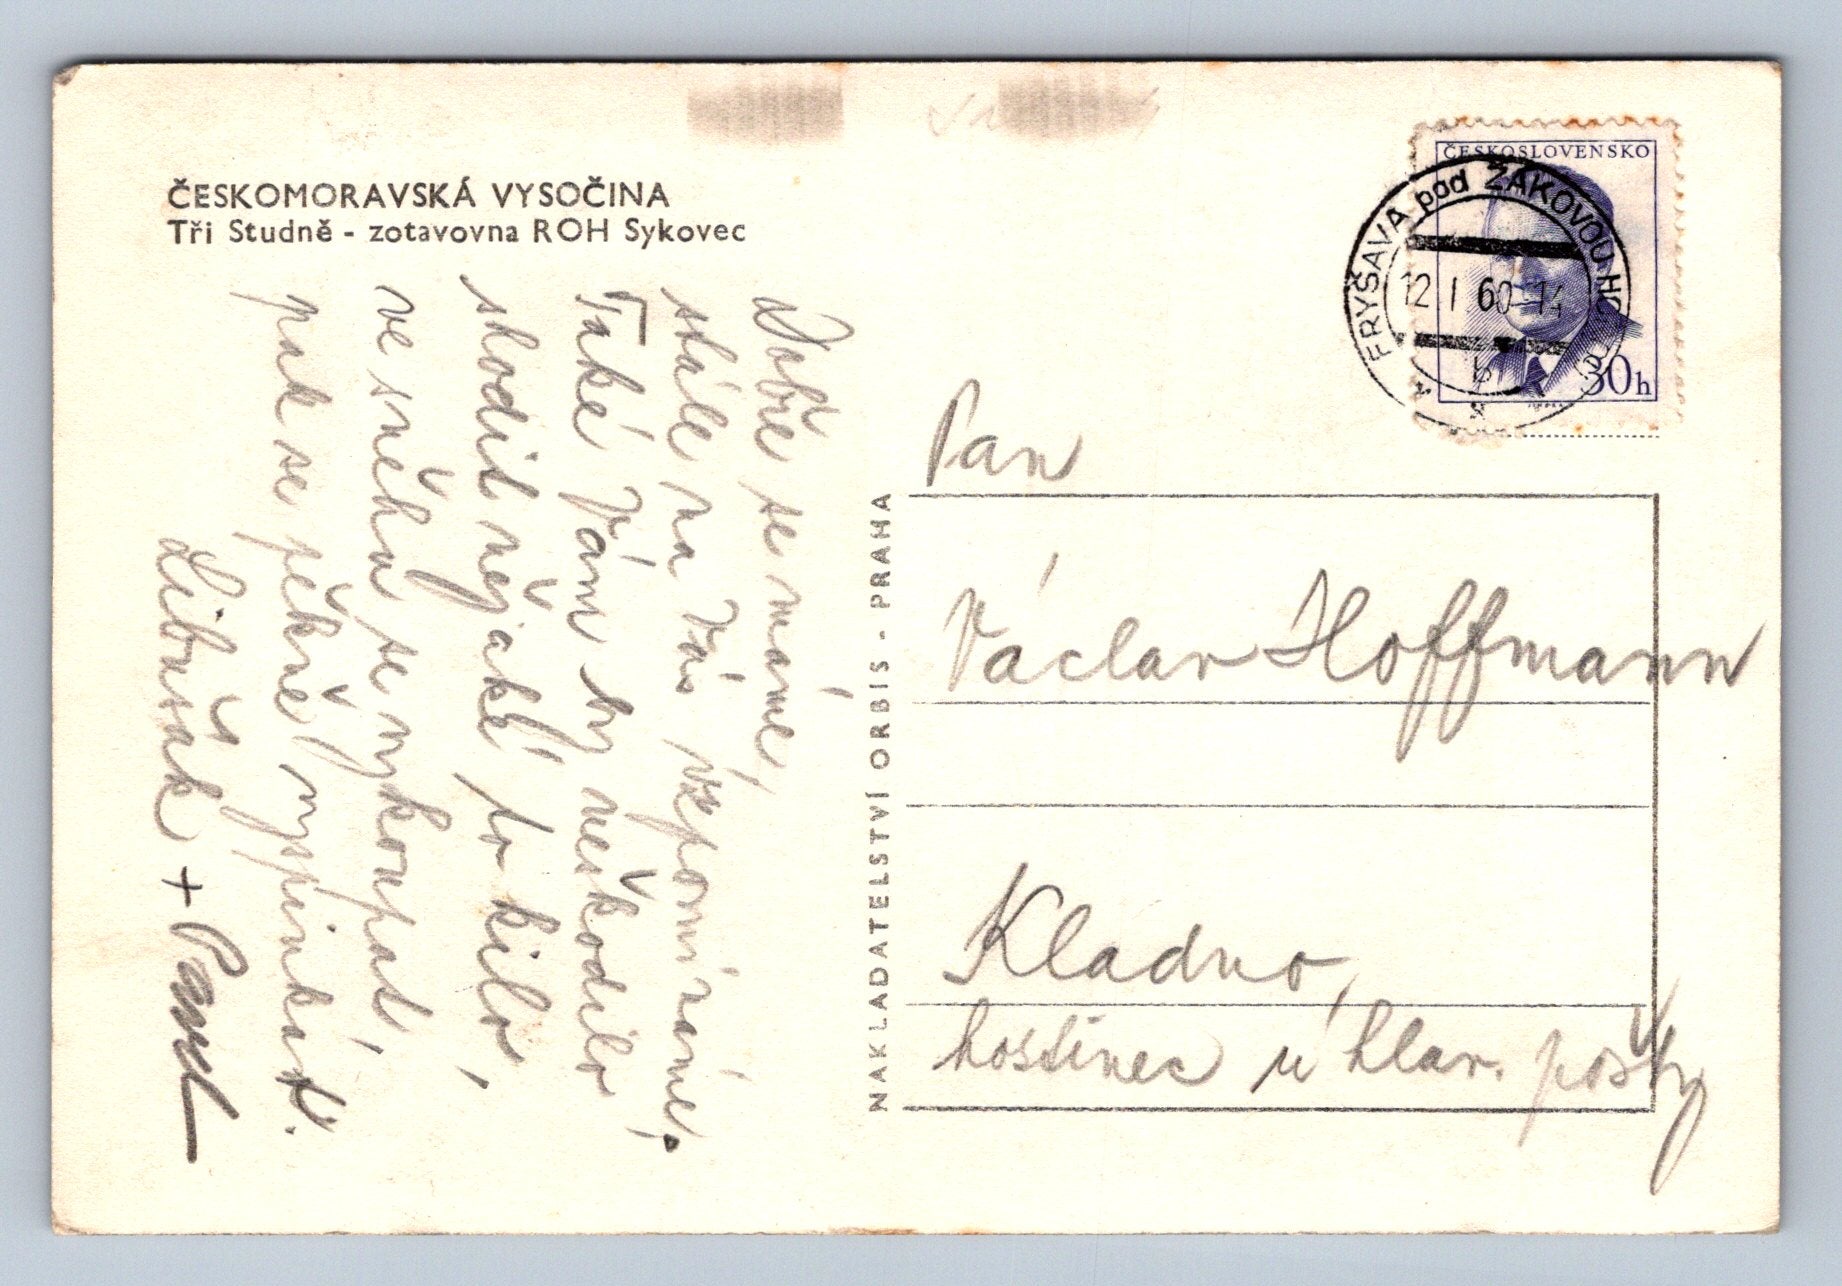 ČESKOMORAVSKÁ VYSOČINA
Tři Studně - zotavovna ROH Sykovec
Dobře se máme,
stále na Vás vzpomínáme,
Také Vám by neškodilo
shodit nějaké to kilo,
ve sněhu se vykoupat,
pak se pěkně vyspinkat.
Libušák + Pavel
NAKLADATELSTVÍ ORBIS - PRAHA
ČESKOSLOVENSKO
30h
FRYŠAVA pod ŽÁKOVOU HOROU
12 I 60 - 14
b
Pan
Václav Hoffmann
Kladno,
hostinec u hlav. pošty